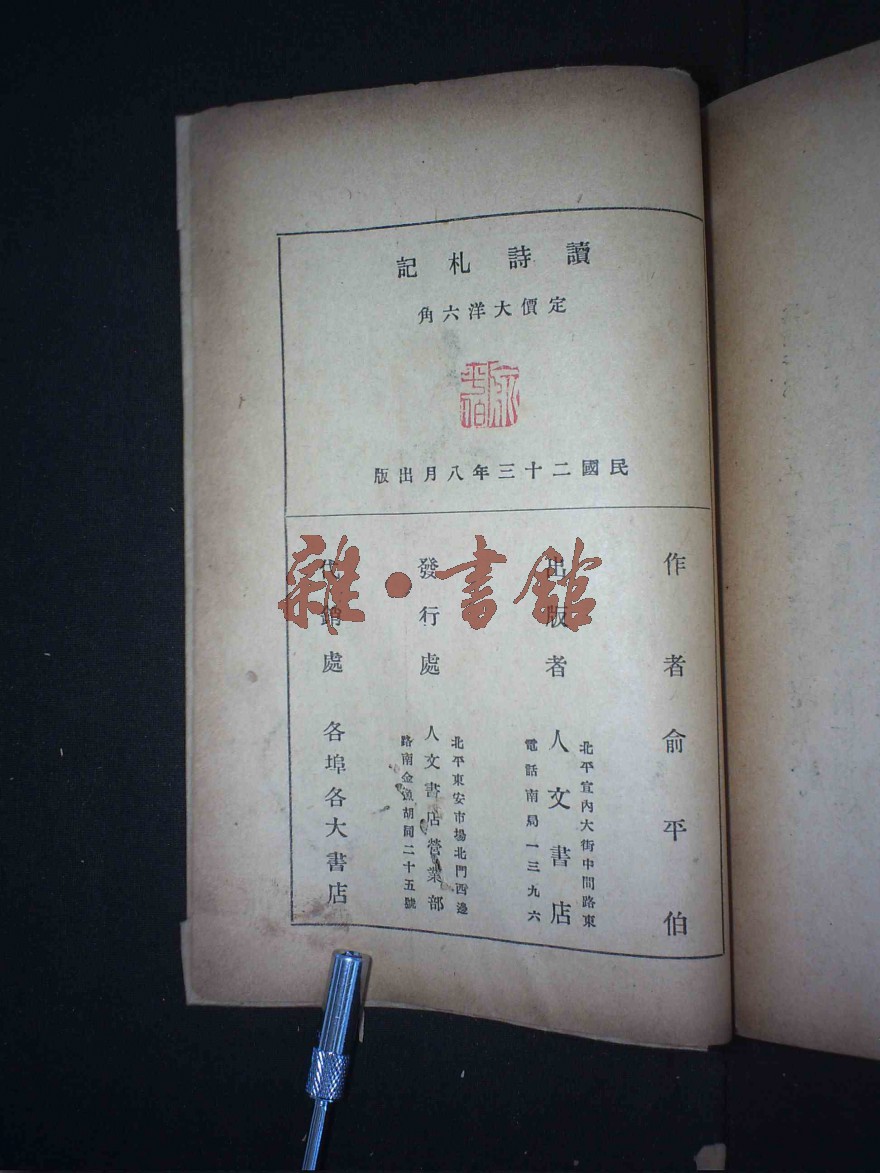 讀詩札記
定價大洋六角
俞平伯
民國二十三年八月出版
作者 俞平伯
出版者 人文書店
北平宣內大街中間路東
電話南局一三九六
發行處 人文書店營業部
北平東安市場北門西邊
路南金漁胡同二十五號
代銷處 各埠各大書店
雜·書館